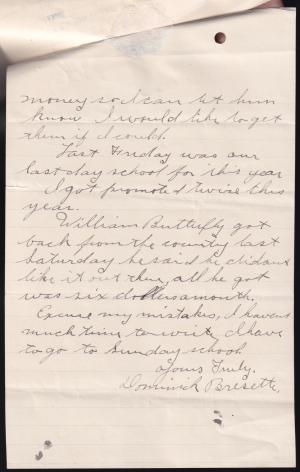 money so I can let him
know I would like to get
them if I could.
Last Friday was our
last day school for this year
I got promoted twise this
year.
William Butterfly got
back from the country last
Saturday he said he did'nt
like it out there, all he got
was six dollers a month,
Excuse my mistakes, I havent
much time to write I have
to go to Sunday school.
Yours Truly.
Dominick Bresette,